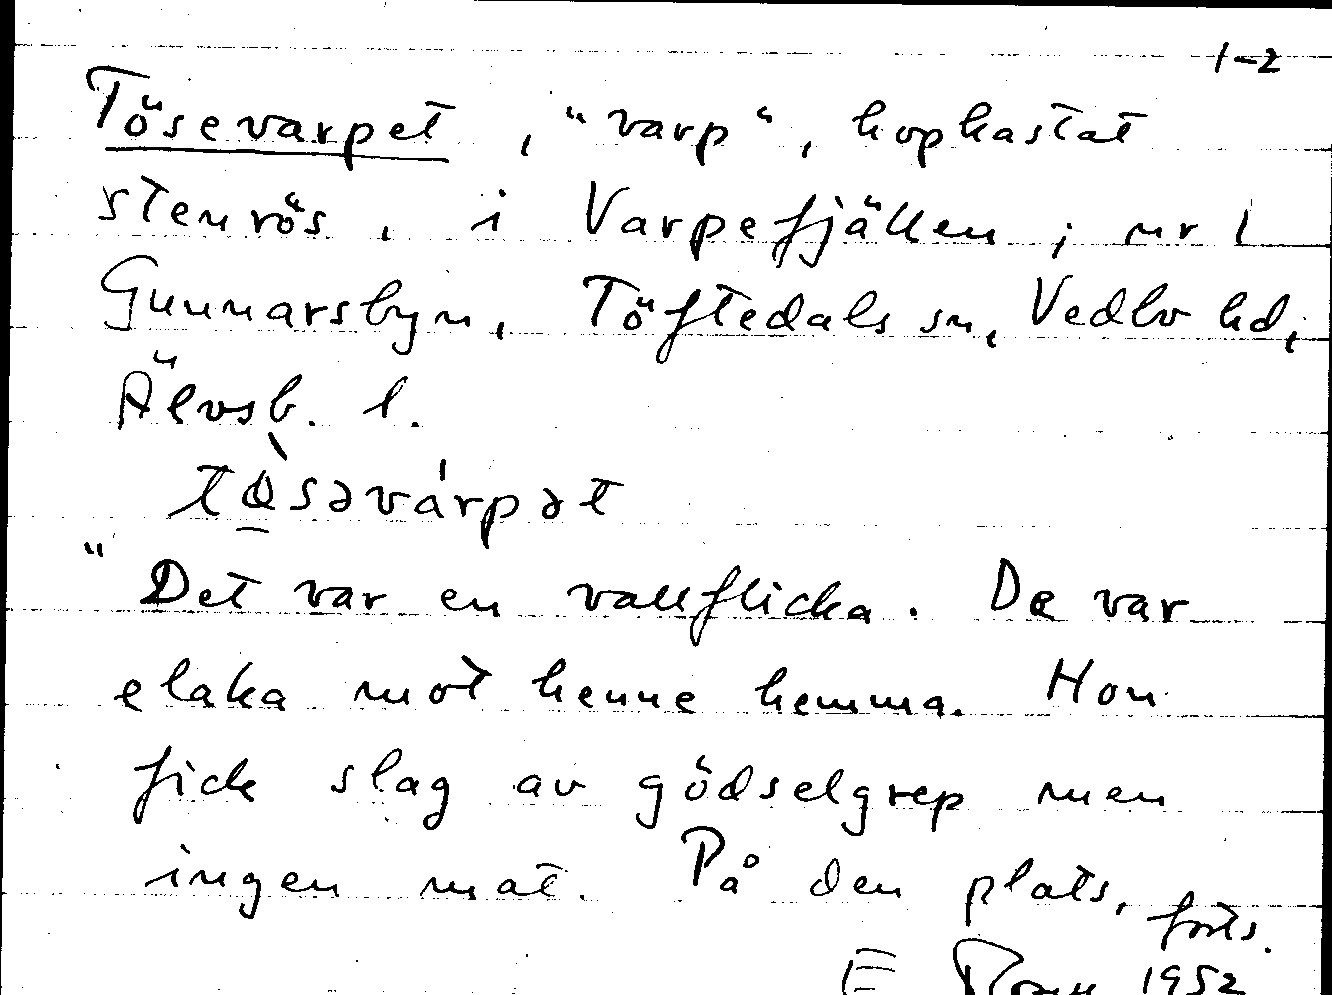 1-2
Tösevarpet, "varp", hopkastat
stenrös, i Varpefjällen; nr 1
Gunnarsbyn, Töftedals sn, Vedbo hd,
Älvsb. l.
"Det var en vallflicka. De var
elaka mot henne hemma. Hon
fick slag av gödselgrep men
ingen mat. På den plats, forts.
E 1952